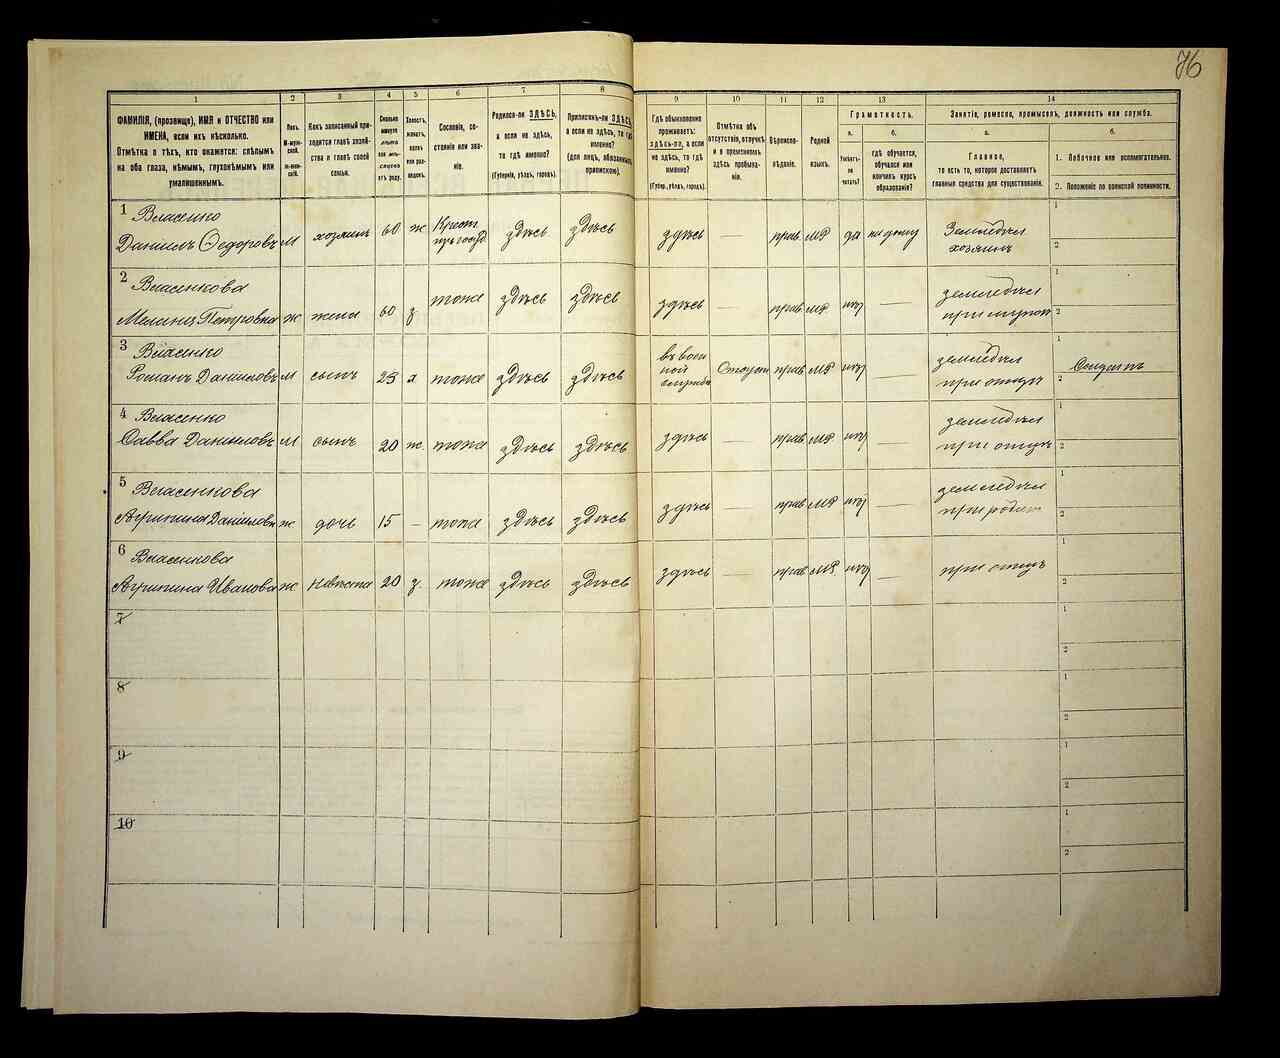 76
1 2 3 4 5 6 7 8 9 10 11 12 13 14
ФАМИЛІЯ, (прозвище), ИМЯ и ОТЧЕСТВО или
ИМЕНА, если ихъ нѣсколько.
Отмѣтка о тѣхъ, кто окажется: слѣпымъ
на оба глаза, нѣмымъ, глухонѣмымъ или
умалишеннымъ.
Полъ.
М-муж-
ской.
ж-жен-
скій.
Какъ записанный при-
ходится главѣ хозяй-
ства и главѣ своей
семьи.
Сколько
минуло
лѣтъ
или мѣ-
сяцевъ
отъ роду.
Холостъ,
женатъ,
вдовъ
или раз-
веденъ.
Сословіе, со-
стояніе или зва-
ніе.
Родился-ли ЗДѢСЬ,
а если не здѣсь,
то гдѣ именно?
(Губернія, уѣздъ, городъ).
Приписанъ-ли ЗДѢСЬ,
а если не здѣсь, то гдѣ
именно?
(для лицъ, обязанныхъ
припискою).
Гдѣ обыкновенно
проживаетъ:
здѣсь-ли, а если
не здѣсь, то гдѣ
именно?
(Губер., уѣздъ, городъ).
Отмѣтка объ
отсутствіи, отлучкѣ
и о временномъ
здѣсь пребыва-
ніи.
Вѣроиспо-
вѣданіе.
Родной
языкъ.
Грамотность.
а.
Умѣетъ-
ли
читать?
б.
гдѣ обучается,
обучался или
кончилъ курсъ
образованія?
Занятіе, ремесло, промыселъ, должность или служба.
а.
Главное,
то есть то, которое доставляетъ
главныя средства для существованія.
б.
1. Побочное или вспомогательное.
2. Положеніе по воинской повинности.
1 Власенко
Данилъ Ѳедоровъ М хозяинъ 60 ж Крест. здѣсь здѣсь здѣсь — прав МР да на дому Земледѣл
хозяинъ
1
2
2 Власенкова
Петровна ж жена 60 з тоже здѣсь здѣсь здѣсь — прав МР нѣт — земледѣл
при
1
2
3 Власенко
Романъ Даниловъ М сынъ 25 тоже здѣсь здѣсь въ воен
ной
службѣ прав МР нѣт — земледѣл
при отцѣ
1
2
4 Власенко
Савва Даниловъ М сынъ 20 ж. тоже здѣсь здѣсь здѣсь — прав МР нѣт — земледѣл
при отцѣ
1
2
5 Власенкова
Агрипина Даниловн ж дочь 15 — тоже здѣсь здѣсь здѣсь — прав МР нѣт — земледѣл
при
1
2
6 Власенкова
Агрипина Иванова ж Невѣста 20 з. тоже здѣсь здѣсь здѣсь — прав МР нѣт — при отцѣ
1
2
7
1
2
8
1
2
9
1
2
10
1
2